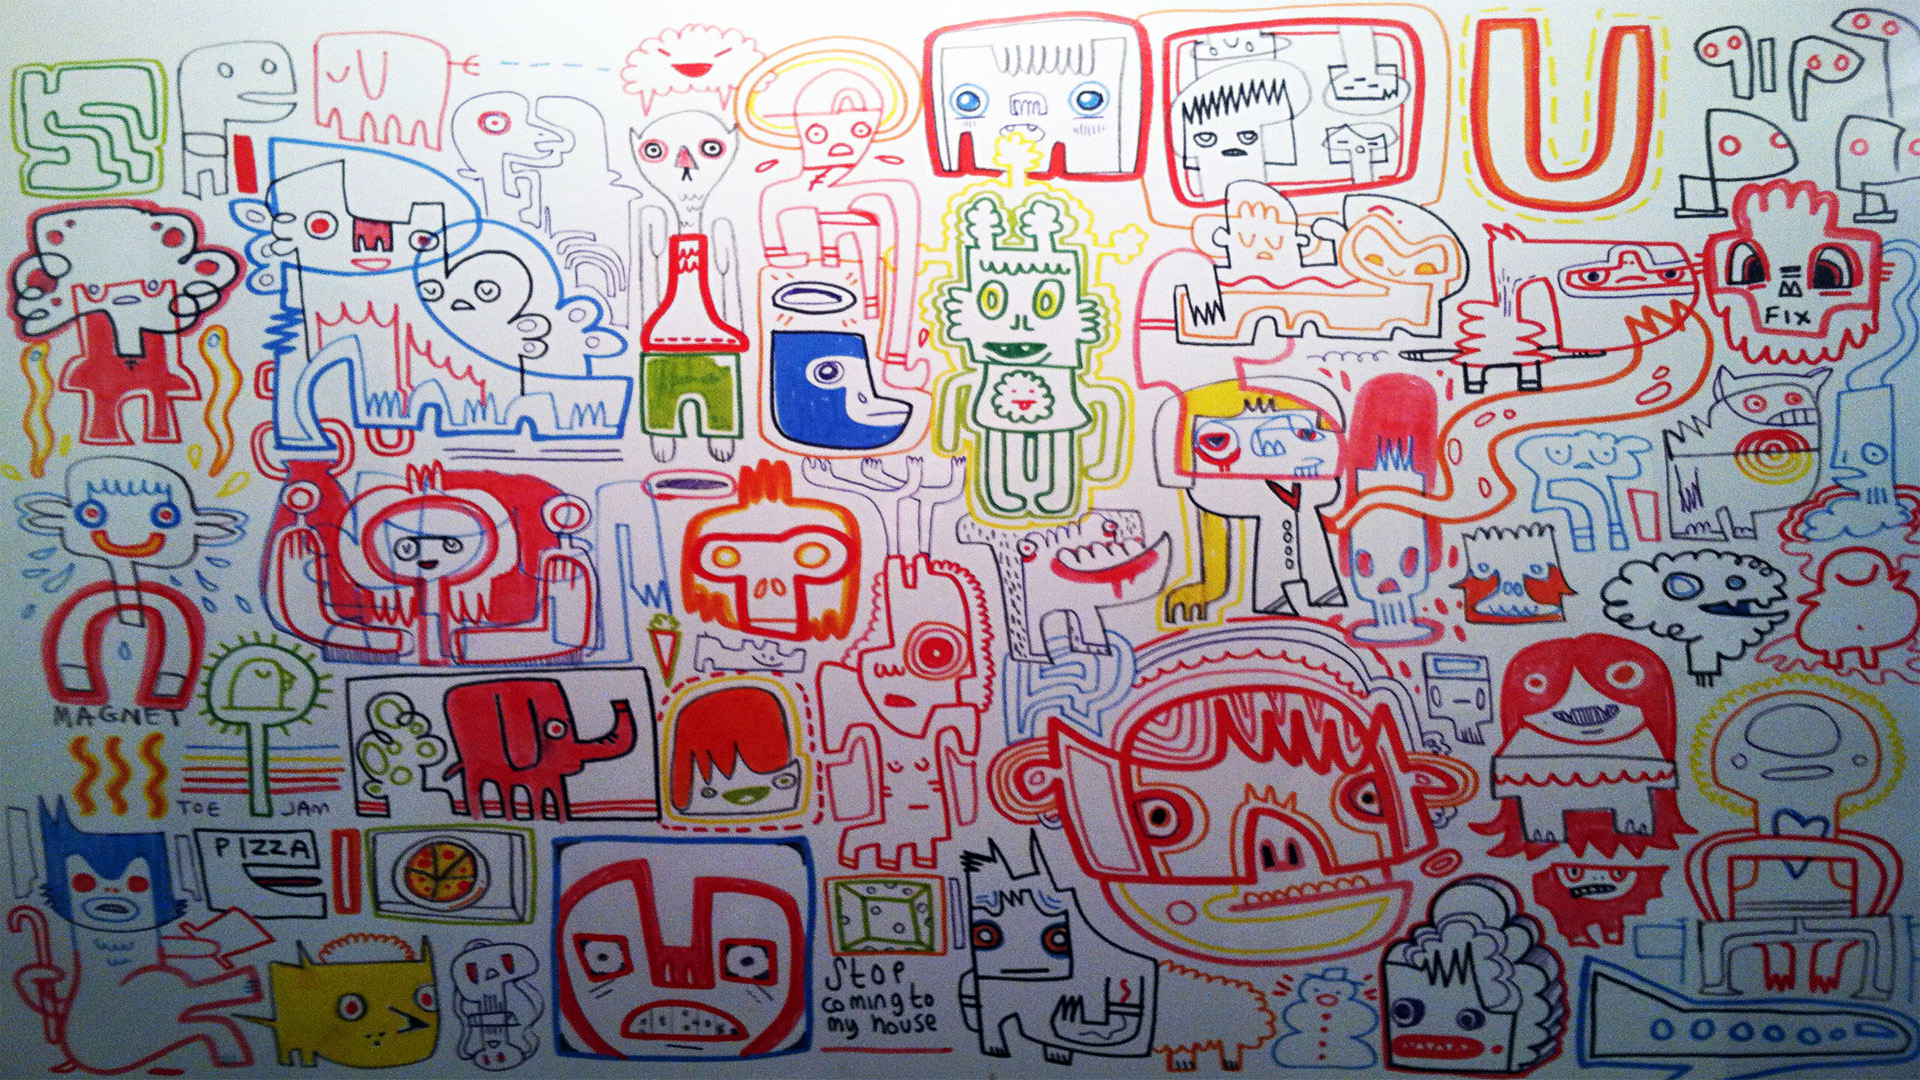 U
FIX
MAGNET
TOE JAM
PIZZA
Stop
coming to
my house